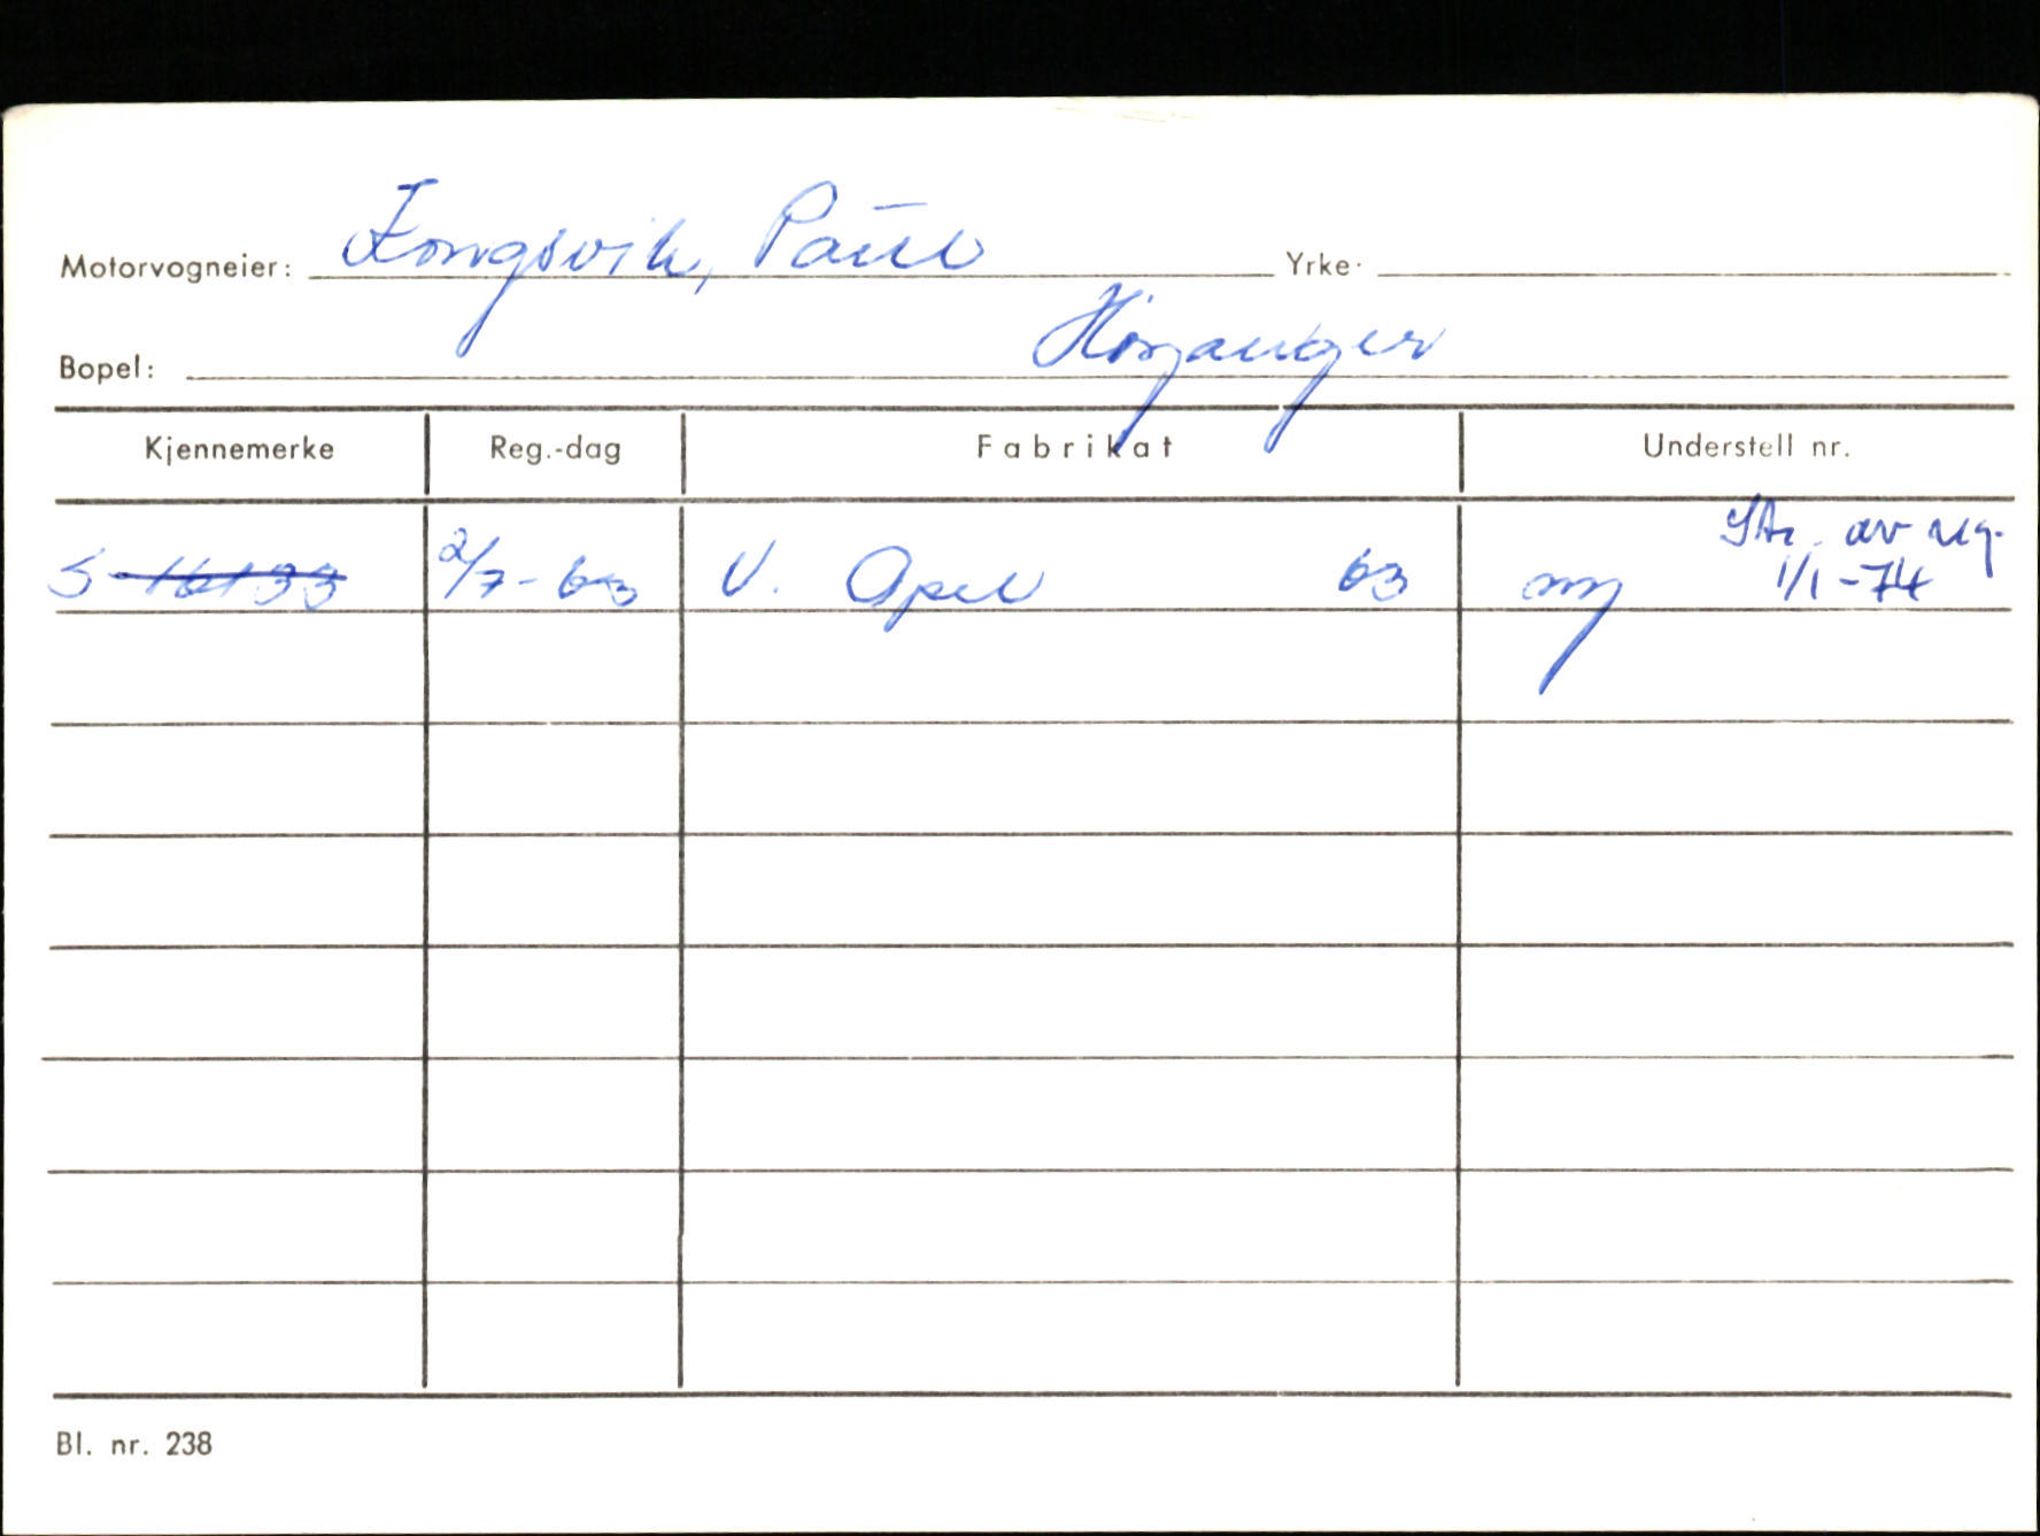 Motorvogneier: Longsvik, Paul Yrke:
Bopel: Høyanger
Kjennemerke Reg.-dag Fabrikat Understell nr.
S-16133 2/7-63 V. Opel 63 ny Str. av reg.
1/1-74
Bl. nr. 238